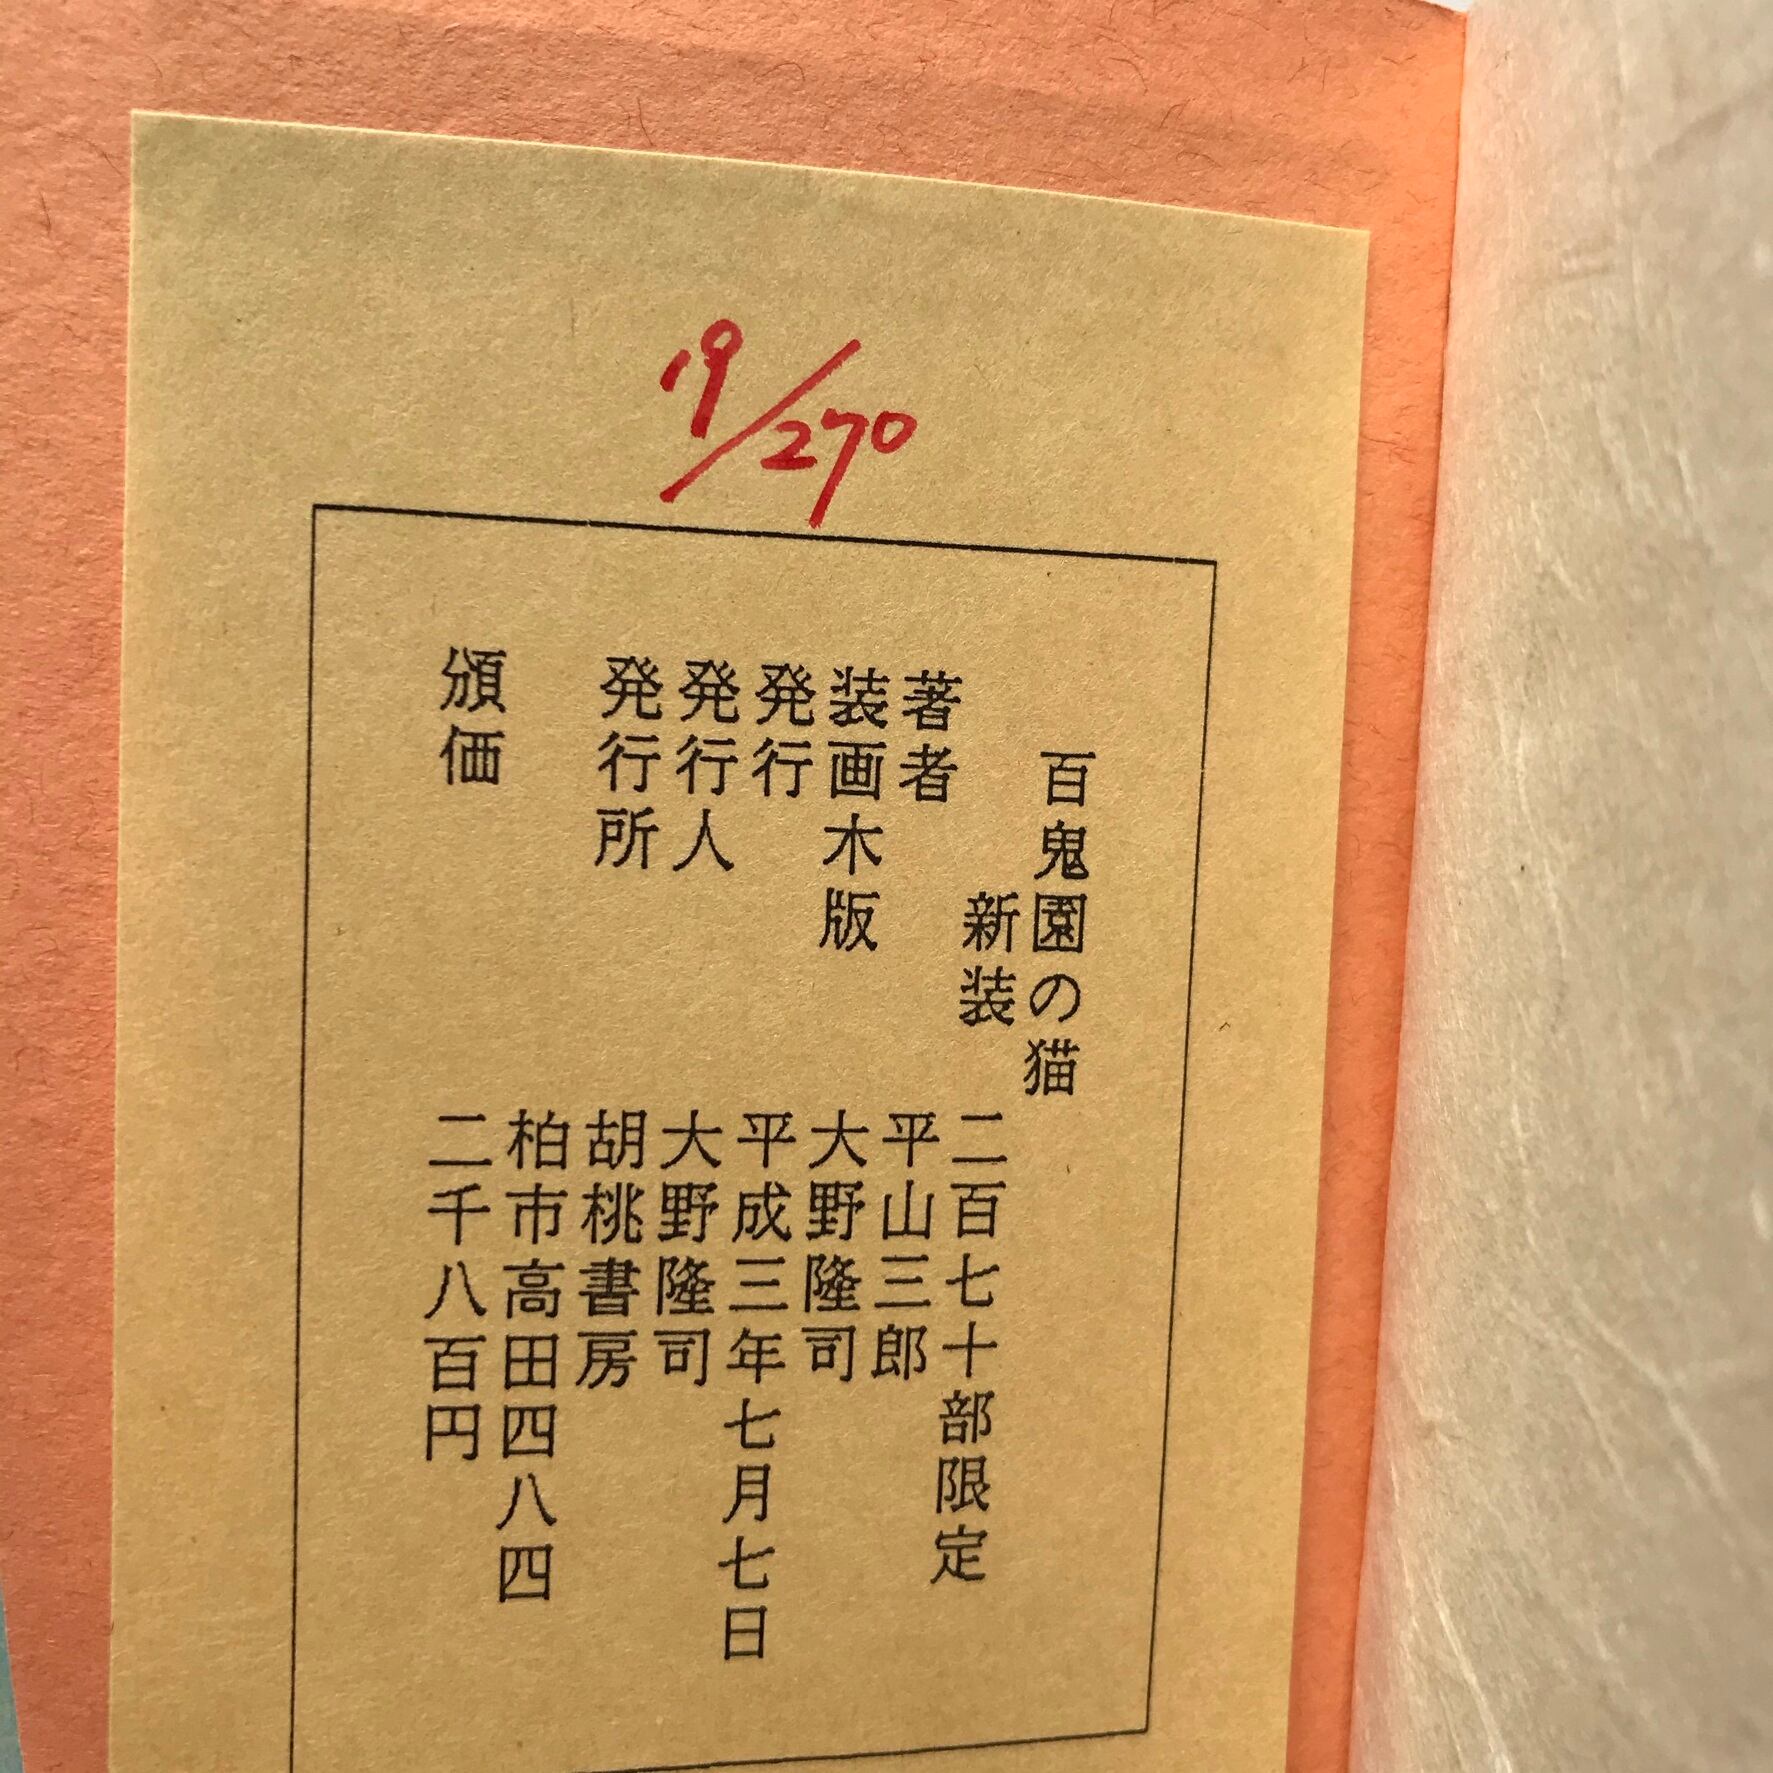 19/270
百鬼園の猫
新装 二百七十部限定
著者 平山三郎
装画木版 大野隆司
発行 平成三年七月七日
発行人 大野隆司
発行所 胡桃書房
柏市高田四八四
頒価 二千八百円